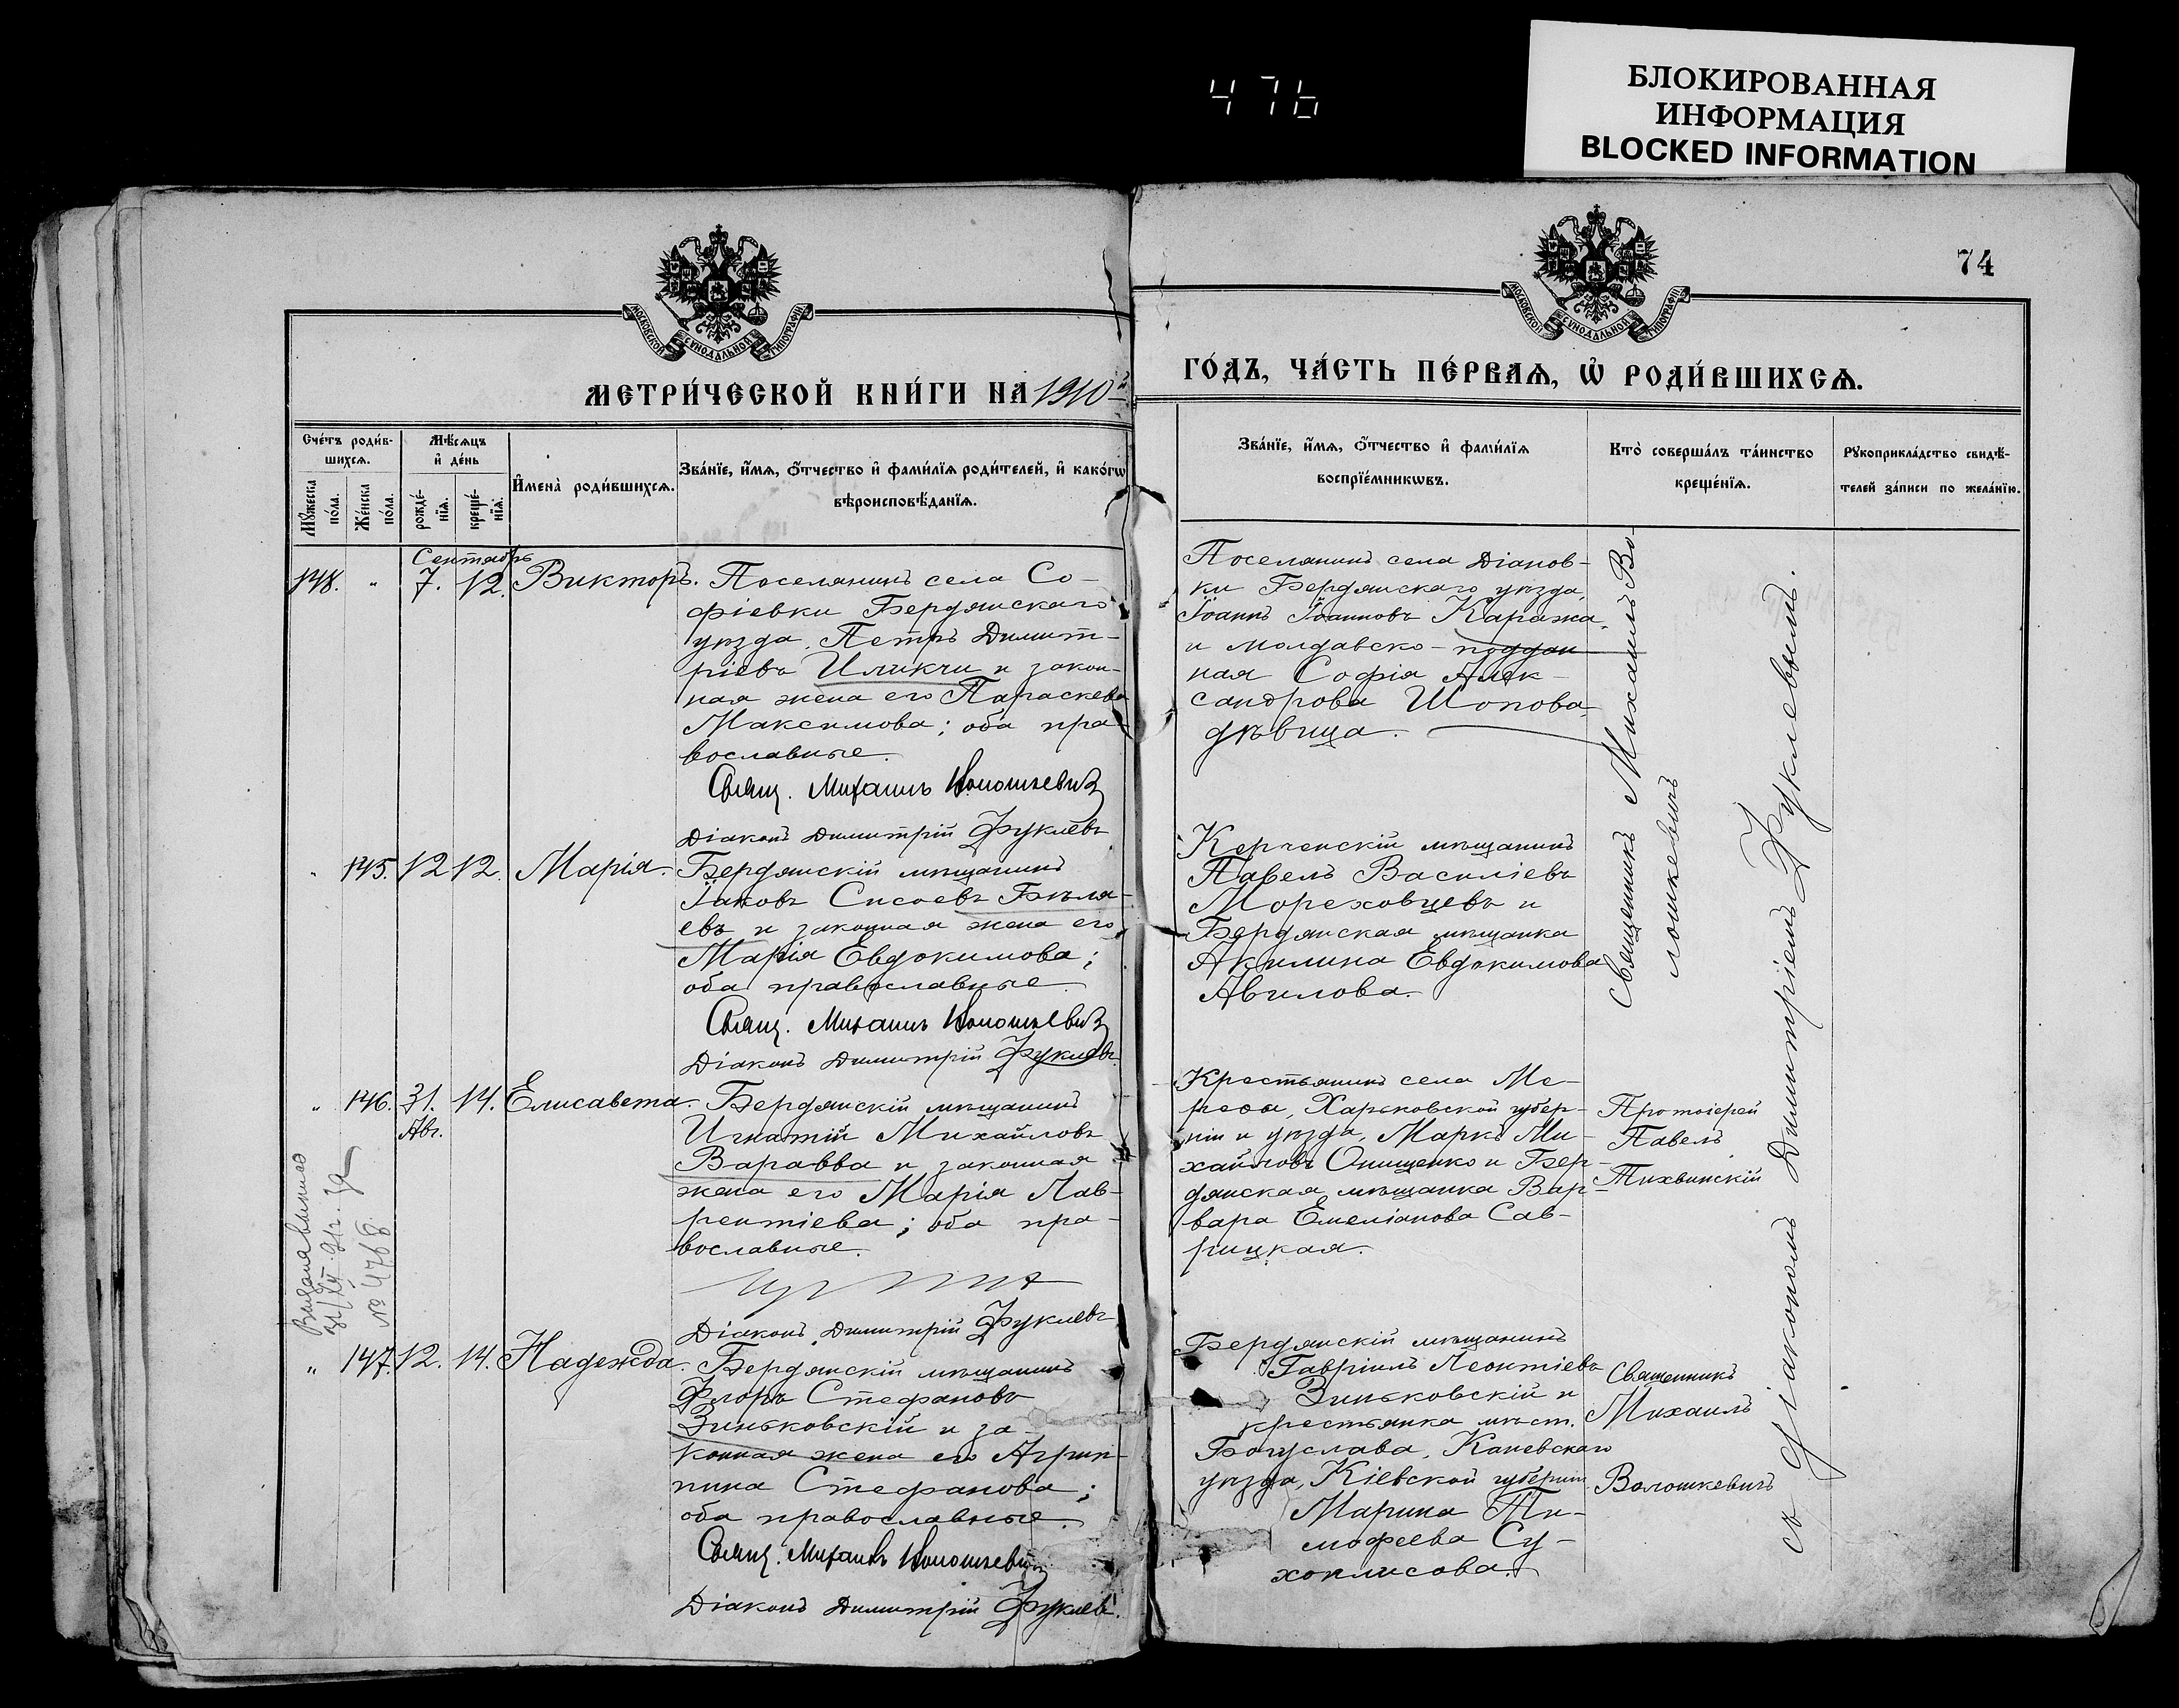 476
БЛОКИРОВАННАЯ
ИНФОРМАЦИЯ
BLOCKED INFORMATION
74
МОСКОВСКОЙ СѴНОДАЛЬНОЙ ТИПОГРАФІИ
МОСКОВСКОЙ СѴНОДАЛЬНОЙ ТИПОГРАФІИ
МЕТРИ́ЧЕСКОЙ КНИ́ГИ НА 1910й
ГО́ДЪ, ЧА́СТЬ ПЕ́РВАѦ, Ѡ҆ РОДИ́ВШИХСѦ.
Сче́тъ роди́в-
шихсѧ.
Мꙋ́жеска
по́ла.
Же́нска
по́ла.
Мѣ́сѧцъ
и҆ де́нь
рожде́-
нїѧ.
креще́-
нїѧ.
И҆мена̀ роди́вшихсѧ.
Зва́нїе, и҆́мѧ, ѻ҆́тчество и҆ фами́лїѧ роди́телей, и҆ како́гѡ
вѣроисповѣ́данїѧ.
Зва́нїе, и҆́мѧ, ѻ҆́тчество и҆ фами́лїѧ
воспрїе́мникѡвъ.
Кто̀ соверша́лъ та́инство
креще́нїѧ.
Рꙋкоприкла́дство свидѣ́-
телей за́писи по жела́нїю.
Сентябрь
148. " 7. 12. Викторъ. Поселянинъ села Со-
фіевки Бердянскаго
уѣзда, Петръ Димит-
ріевъ Иликчи и закон-
ная жена его Параскева
Максимова; оба пра-
вославные.
Свящ. Михаилъ Волошкевичъ
Діаконъ Димитрій Фуклевъ
Поселянинъ села Діанов-
ки Бердянскаго уѣзда,
Іоаннъ Іоанновъ Каража,
и молдавско-поддан
ная Софія Алек-
сандрова Шопова,
дѣвица.
Священникъ Михаилъ Во-
лошкевичъ
съ діакономъ Димитріемъ Фуклевымъ.
" 145. 12 12. Марія. Бердянскій мѣщанинъ
Іаковъ Сисоевъ Бѣля-
евъ и законная жена его
Марія Евдокимова;
оба православные.
Свящ. Михаилъ Волошкевичъ
Діаконъ Димитрій Фуклевъ.
Керченскій мѣщанинъ
Павелъ Василіевъ
Мореховцевъ и
Бердянская мѣщанка
Акилина Евдокимова
Авилова.
" 146. 31. 14. Елисавета. Бердянскій мѣщанинъ
Авг.
Игнатій Михайловъ
Варавва и законная
жена его Марія Лав-
рентіева; оба пра-
вославные.
Діаконъ Димитрій Фуклевъ
Крестьянинъ села Ме-
рефы, Харьковской губер-
ніи и уѣзда, Маркъ Ми-
хайловъ Онищенко и Бер-
дянская мѣщанка Вар-
вара Емеліанова Сав-
рицкая.
Протоіерей
Павелъ
Тихвинскій
№ 4768.
" 147. 12. 14. Надежда. Бердянскій мѣщанинъ
Флоръ Стефановъ
Зиньковскій и за-
конная жена его Агрип-
пина Стефанова;
оба православные.
Свящ. Михаилъ Волошкевичъ
Діаконъ Димитрій Фуклевъ.
Бердянскій мѣщанинъ
Гавріилъ Леонтіевъ
Зиньковскій и
крестьянка мѣст.
Богуслава, Каневскаго
уѣзда, Кіевской губерніи
Марина Ти-
мофеева Су-
хоплисова.
Священникъ
Михаилъ
Волошкевичъ